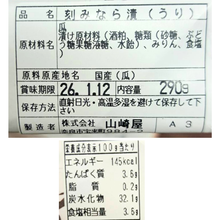 品名 刻みなら漬（うり）
瓜
原材料名 漬け原材料（酒粕、糖類（砂糖、ぶどう糖果糖液糖、水飴）、みりん、食塩）
原料原産地名 国産（瓜）
賞味期限 26.1.12 内容量 290g
保存方法 直射日光・高温多湿を避けて保存して下さい
製造者 株式会社 山崎屋 A3
栄養成分表示100g当たり
エネルギー 145kcal
たんぱく質 3.5g
脂質 0.2g
炭水化物 32.1g
食塩相当量 3.5g